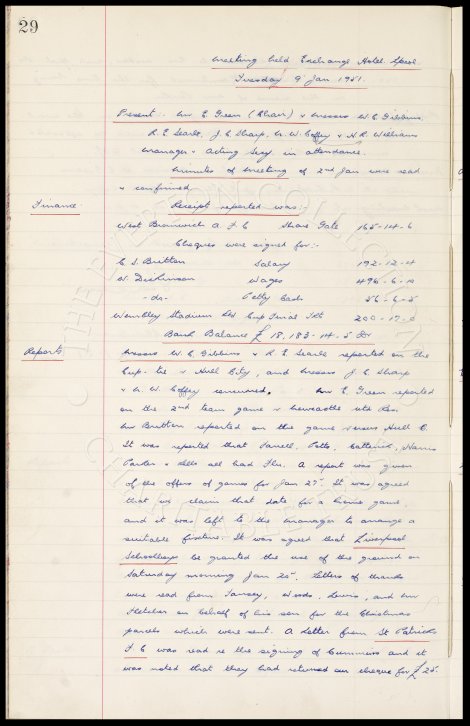 29
Meeting held Exchange Hotel L'pool
Tuesday 9 Jan 1951.
Present. Mr E. Green (Chair) & Messrs W. C. Gibbins,
R. E. Searle, J. C. Sharp, A. W. Coffey & H. R. Williams
Manager & Acting Secy in attendance.
Minutes of Meeting of 2nd Jan were read
& confirmed
Finance. Receipt reported was:-
West Bromwich A F C Share Gate 165-14-6
Cheques were signed for:-
C. S. Britton Salary 192-12-4
W. Dickinson Wages 496-6-10
-do- Petty Cash 56-6-5
Wembley Stadium Ltd Cup Final Tkt 200-17-0
Bank Balance £ 18,183-14-5 Dr
Reports Messrs W. C. Gibbins & R E Searle reported on the
Cup-tie v Hull City, and Messrs J. C. Sharp
& A. W. Coffey concurred. Mr E. Green reported
on the 2nd team game v Newcastle Utd Res.
Mr Britton reported on the game versus Hull C.
It was reported that Farrell, Potts, Catterick, Harris
Parker & Wells all had Flu. A report was given
of the offers of games for Jan 27. It was agreed
that we claim that date for a home game
and it was left to the Manager to arrange a
suitable fixture. It was agreed that Liverpool
Schoolboys be granted the use of the ground on
Saturday morning Jan 20. Letters of thanks
were read from Tansey, Woods, Lewis, and Mr
Fletcher on behalf of his son for the Christmas
parcels which were sent. A Letter from St Patricks
F C was read re the signing of Cummins and it
was noted that they had returned our cheque for £25.
THE EVERTON COLLECTION